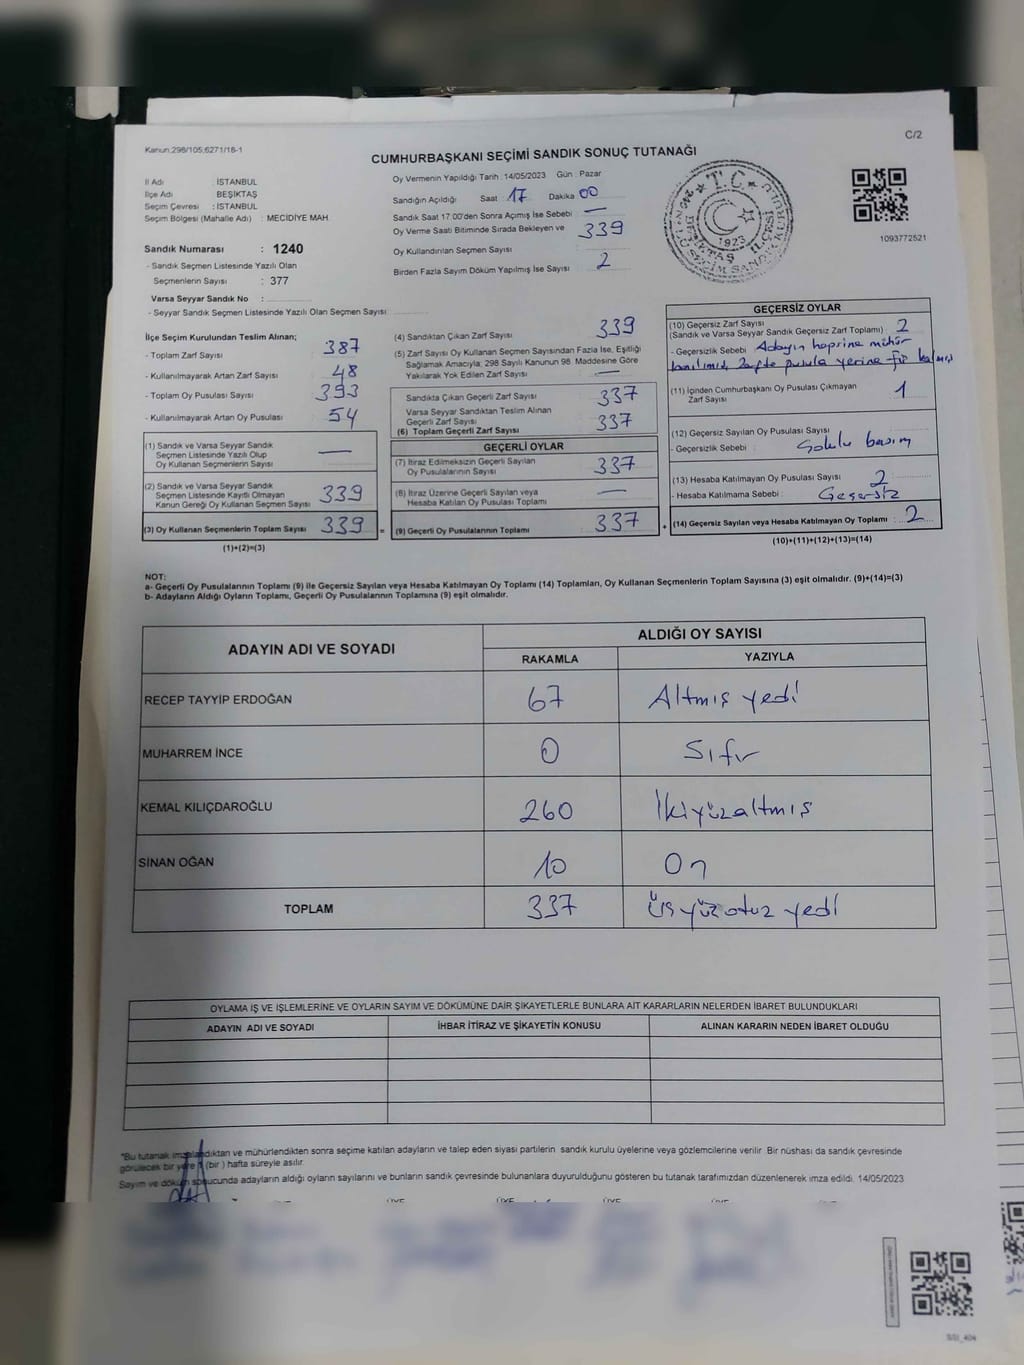 C/2
Kanun;298/105;6271/18-1
CUMHURBAŞKANI SEÇİMİ SANDIK SONUÇ TUTANAĞI
İl Adı : İSTANBUL
İlçe Adı BEŞİKTAŞ
Seçim Çevresi : İSTANBUL
Seçim Bölgesi (Mahalle Adı) : MECİDİYE MAH.
Sandık Numarası : 1240
- Sandık Seçmen Listesinde Yazılı Olan
Seçmenlerin Sayısı : 377
Varsa Seyyar Sandık No :
- Seyyar Sandık Seçmen Listesinde Yazılı Olan Seçmen Sayısı:
Oy Vermenin Yapıldığı Tarih : 14/05/2023 Gün : Pazar
Sandığın Açıldığı Saat : 17 Dakika 00
Sandık Saat 17.00'den Sonra Açımış İse Sebebi : —
Oy Verme Saati Bitiminde Sırada Bekleyen ve 339
Oy Kullandırılan Seçmen Sayısı
Birden Fazla Sayım Döküm Yapılmış İse Sayısı : 2
T.C.
1923
BEŞİKTAŞ İLÇESİ
1093772521
İlçe Seçim Kurulundan Teslim Alınan;
- Toplam Zarf Sayısı : 387
- Kullanılmayarak Artan Zarf Sayısı : 48
- Toplam Oy Pusulası Sayısı : 393
- Kullanılmayarak Artan Oy Pusulası : 54
(1) Sandık ve Varsa Seyyar Sandık
Seçmen Listesinde Yazılı Olup
Oy Kullanan Seçmenlerin Sayısı : —
(2) Sandık ve Varsa Seyyar Sandık
Seçmen Listesinde Kayıtlı Olmayan
Kanun Gereği Oy Kullanan Seçmen Sayısı 339
(3) Oy Kullanan Seçmenlerin Toplam Sayısı 339 =
(1)+(2)=(3)
(4) Sandıktan Çıkan Zarf Sayısı : 339
(5) Zarf Sayısı Oy Kullanan Seçmen Sayısından Fazla İse, Eşitliği
Sağlamak Amacıyla; 298 Sayılı Kanunun 98. Maddesine Göre
Yakılarak Yok Edilen Zarf Sayısı : —
Sandıkta Çıkan Geçerli Zarf Sayısı : 337
Varsa Seyyar Sandıktan Teslim Alınan
Geçerli Zarf Sayısı : 337
(6) Toplam Geçerli Zarf Sayısı
GEÇERLİ OYLAR
(7) İtiraz Edilmeksizin Geçerli Sayılan
Oy Pusulalarının Sayısı : 337
(8) İtiraz Üzerine Geçerli Sayılan veya
Hesaba Katılan Oy Pusulası Toplamı : —
(9) Geçerli Oy Pusulalarının Toplamı : 337 +
GEÇERSİZ OYLAR
(10) Geçersiz Zarf Sayısı
(Sandık ve Varsa Seyyar Sandık Geçersiz Zarf Toplamı) : 2
- Geçersizlik Sebebi : Adayın mühür
zarfta pusula yerine
(11) İçinden Cumhurbaşkanı Oy Pusulası Çıkmayan 1
Zarf Sayısı
(12) Geçersiz Sayılan Oy Pusulası Sayısı :
- Geçersizlik Sebebi :
(13) Hesaba Katılmayan Oy Pusulası Sayısı : 2
- Hesaba Katılmama Sebebi : Geçersiz
(14) Geçersiz Sayılan veya Hesaba Katılmayan Oy Toplamı : 2
(10)+(11)+(12)+(13)=(14)
NOT:
a- Geçerli Oy Pusulalarının Toplamı (9) ile Geçersiz Sayılan veya Hesaba Katılmayan Oy Toplamı (14) Toplamları, Oy Kullanan Seçmenlerin Toplam Sayısına (3) eşit olmalıdır. (9)+(14)=(3)
b- Adayların Aldığı Oyların Toplamı, Geçerli Oy Pusulalarının Toplamına (9) eşit olmalıdır.
ADAYIN ADI VE SOYADI
ALDIĞI OY SAYISI
RAKAMLA YAZIYLA
RECEP TAYYİP ERDOĞAN 67 Altmış yedi
MUHARREM İNCE 0 Sıfır
KEMAL KILIÇDAROĞLU 260 İkiyüzaltmış
SİNAN OĞAN 10 On
TOPLAM 337 üçyüzotuz yedi
OYLAMA İŞ VE İŞLEMLERİNE VE OYLARIN SAYIM VE DÖKÜMÜNE DAİR ŞİKAYETLERLE BUNLARA AİT KARARLARIN NELERDEN İBARET BULUNDUKLARI
ADAYIN ADI VE SOYADI İHBAR İTİRAZ VE ŞİKAYETİN KONUSU ALINAN KARARIN NEDEN İBARET OLDUĞU
"Bu tutanak imzalandıktan ve mühürlendikten sonra seçime katılan adayların ve talep eden siyasi partilerin sandık kurulu üyelerine veya gözlemcilerine verilir. Bir nüshası da sandık çevresinde
görülecek bir yere 1 (bir ) hafta süreyle asılır.
Sayım ve döküm sonucunda adayların aldığı oyların sayılarını ve bunların sandık çevresinde bulunanlara duyurulduğunu gösteren bu tutanak tarafımızdan düzenlenerek imza edildi. 14/05/2023